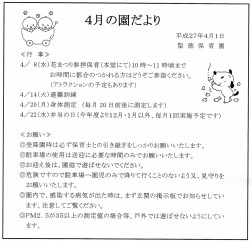 4月の園だより
平成27年4月1日
聖徳保育園
≪行事≫
4/8(水)花まつり参拝保育(本堂にて)10時~11時頃まで
お時間に都合のつかれる方はどうぞご参加ください。
(アトラクションの予定もあります)
4/14(火)避難訓練
4/20(月)身体測定 (毎月20日前後に測定します)
4/22(水)弁当の日(今年度より12月・1月以外、毎月1回実施予定です)
≪お願い≫
◎登降園時は必ず保育士との引き継ぎをしっかりお願いいたします。
◎駐車場の使用は送迎に必要な時間のみでお願いいたします。
◎お迎え後は、園庭で遊ばせないでください。
◎危険ですので駐車場へ園児のみで降りて行くことのないよう、見守りをお願いいたします。
◎園内で、感染する病気が出た時は、まず玄関の掲示板でお知らせしています。注意してご覧ください。
◎PM2.5が35以上の測定値の場合等、戸外では遊ばせないようにしています。